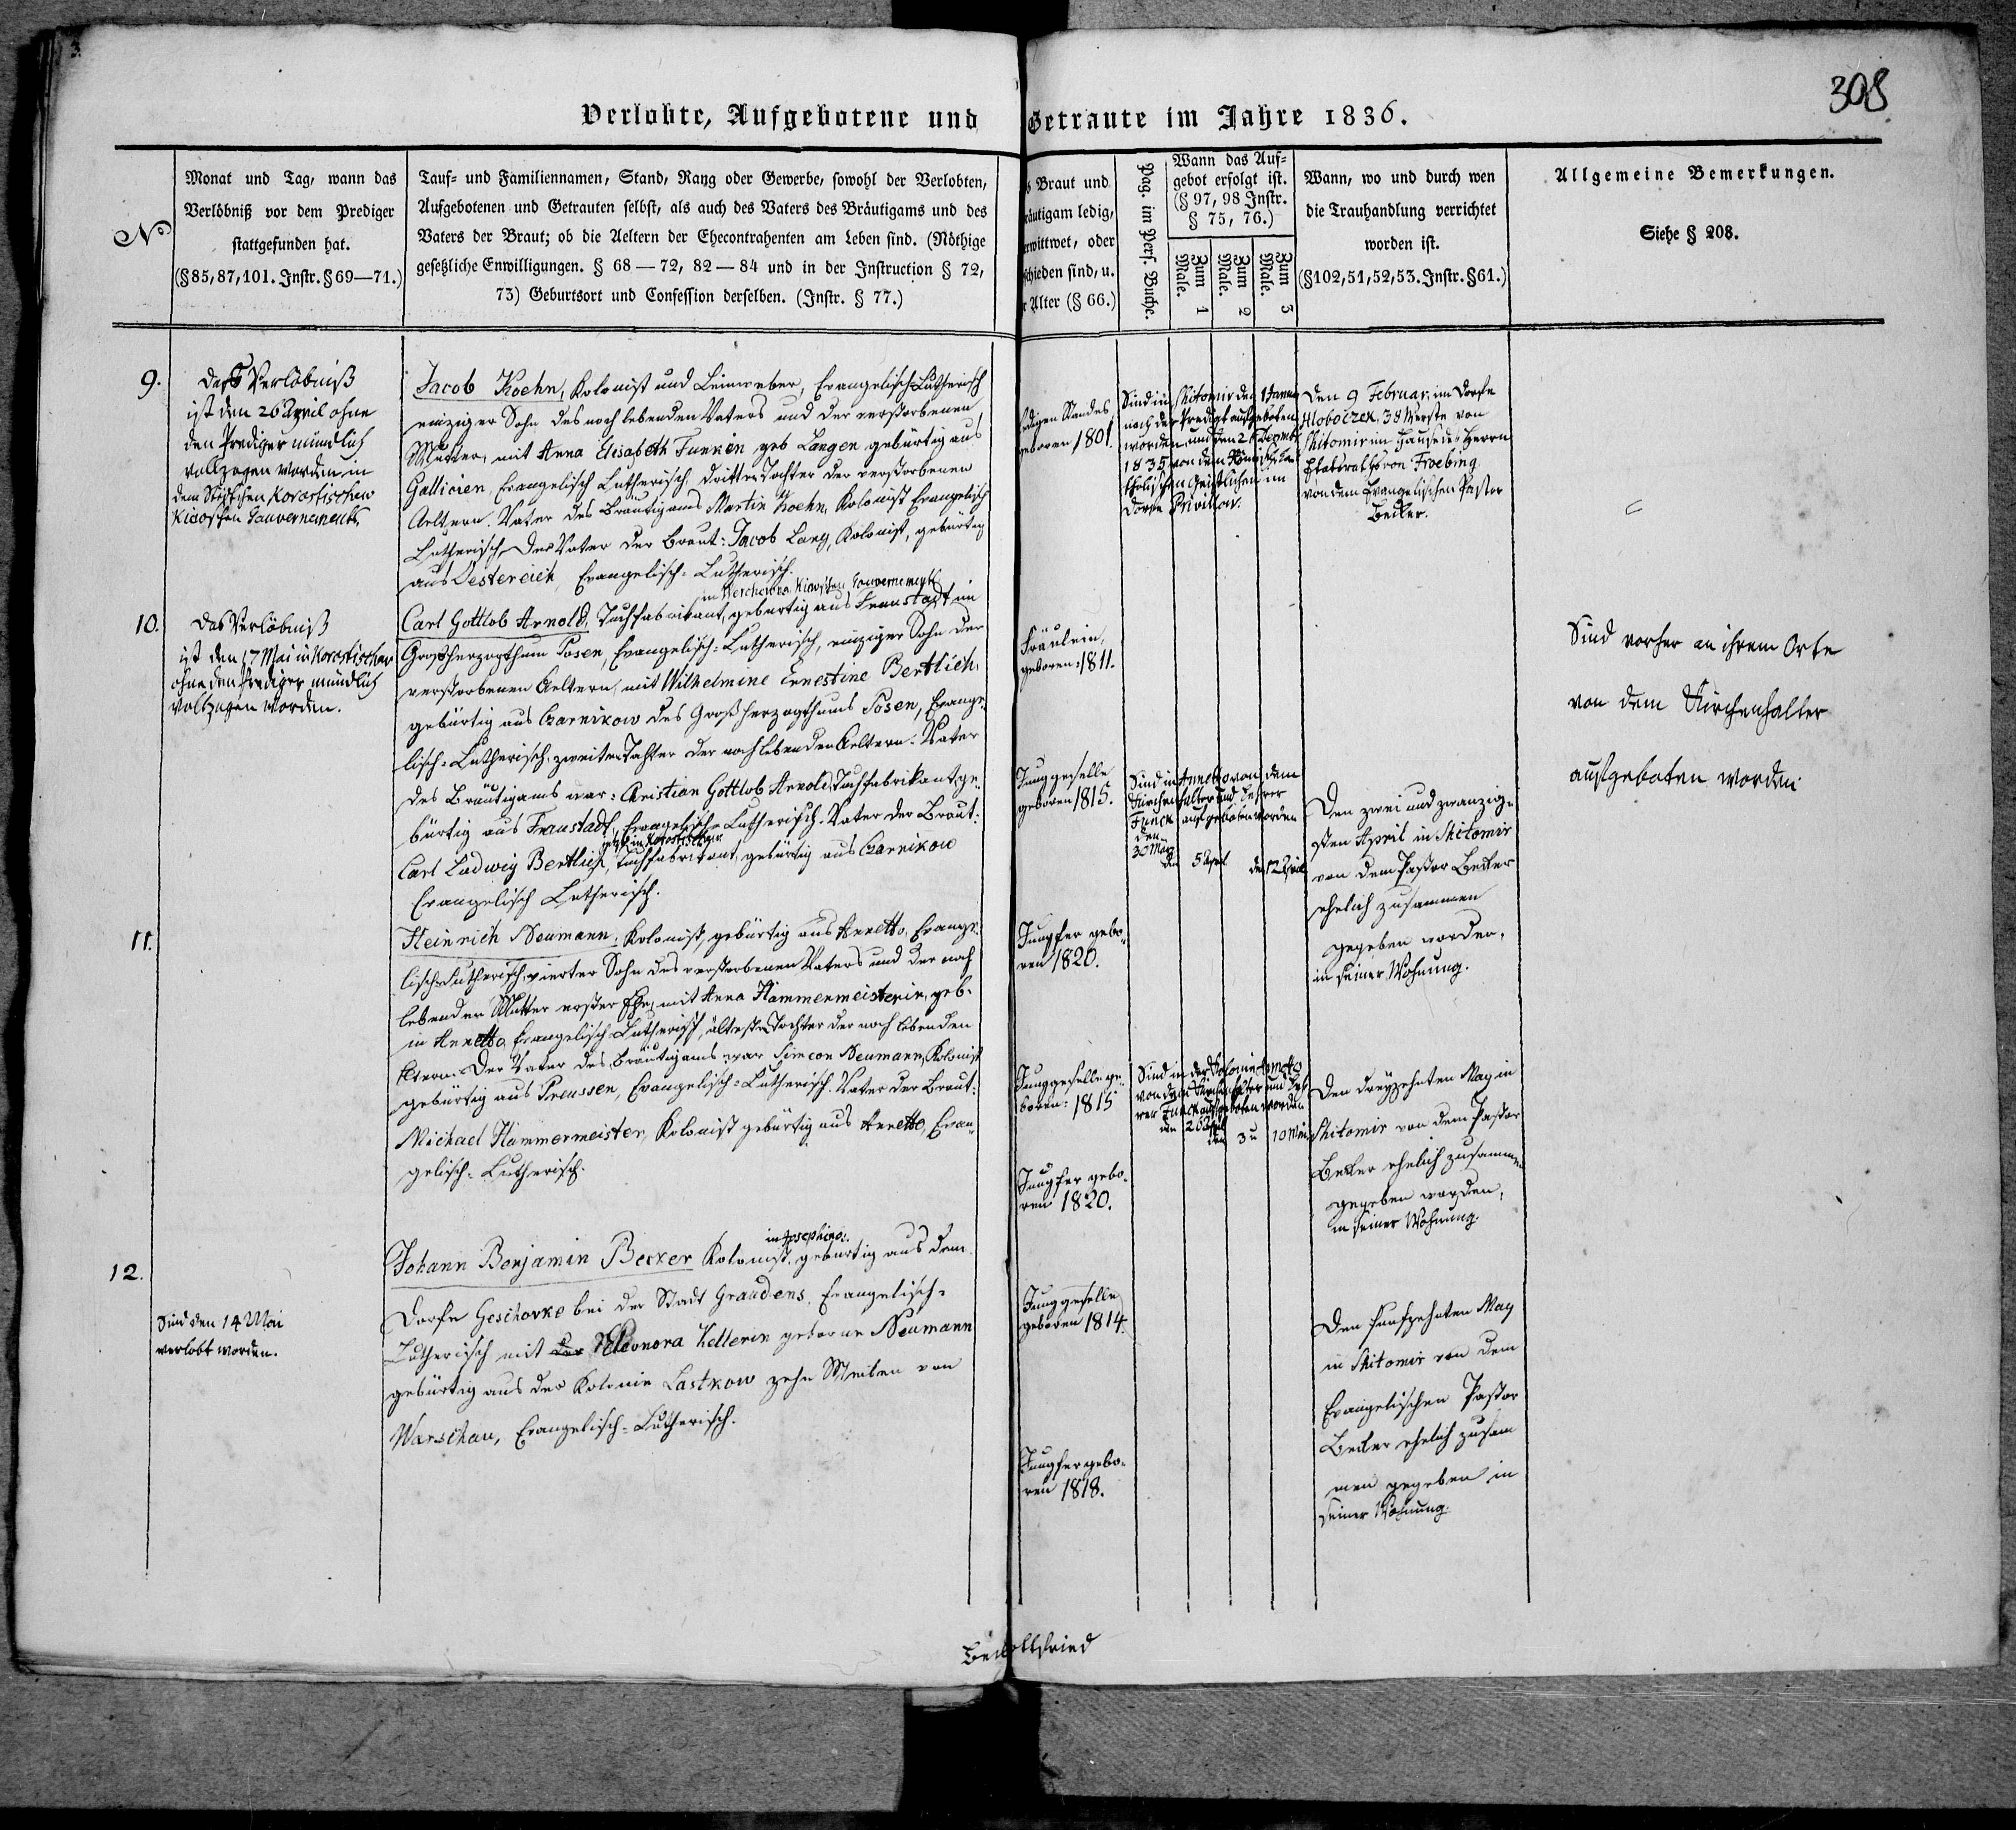 308
Verlobte, Aufgebotene und Getraute im Jahre 1836.
No
Monat und Tag, wann das
Verlöbniß vor dem Prediger
stattgefunden hat.
(§85,87,101. Instr.§69—71.)
Tauf- und Familiennamen, Stand, Rang oder Gewerbe, sowohl der Verlobten,
Aufgebotenen und Getrauten selbst, als auch des Vaters des Bräutigams und des
Vaters der Braut; ob die Aeltern der Ehecontrahenten am Leben sind. (Nöthige
gesetzliche Enwilligungen. § 68—72, 82—84 und in der Instruction § 72,
73) Geburtsort und Confession derselben. (Instr. § 77.)
Braut und
räutigam ledig,
rwittwet, oder
schieden sind, u.
Alter (§ 66.)
Pag. im Pers. Buche.
Wann das Auf-
gebot erfolgt ist.
(§ 97, 98 Instr.
§ 75, 76.)
Zum 1
Male.
Zum 2
Male.
Zum 3
Male.
Wann, wo und durch wen
die Trauhandlung verrichtet
worden ist.
(§102,51,52,53. Instr.§61.)
Allgemeine Bemerkungen.
Siehe § 208.
9.
Verlöbniß
ist den 26 April ohne
den Prediger mündlich
vollzogen worden in
dem Korostischew
Kiewschen Gouvernements
Jacob Koehn, Kolonist und Leinweber, Evangelisch-Lutherisch
einziger Sohn des noch lebenden Vaters und der verstorbenen
Mutter, mit Anna Elisabeth Funkin geb Langen gebürtig aus
Gallicien, Evangelisch Lutherisch, dritte Tochter der verstorbenen
Aeltern. Vater des Bräutigams Martin Koehn, Kolonist Evangelisch
Lutherisch, der Vater der Braut: Jacob Lang, Kolonist, gebürtig
aus Oestereich, Evangelisch-Lutherisch.
ledigen Standes
geboren 1801.
Sind in Shitomir den 1 Januar
nach der Predigt aufgeboten
worden, und den 26 Decembr
1835 von dem Römisch Ka-
tholischen Geistlichen im
Dorfe
Den 9 Februar, im Dorfe
Hloboczek, 38 Werste von
Shitomir im Hause des Herrn
Etatsraths von Froebing
von dem Evangelischen Pastor
Becker.
10.
Das Verlöbniß
ist den 17 Mai in Korostischew
ohne den Prediger mündlich
vollzogen worden.
in Werchowna Kiewschen Gouvernements
Carl Gottlob Arnold, Tuchfabrikant, gebürtig aus Fraustadt im
Großherzogthum Posen, Evangelisch-Lutherisch, einziger Sohn der
verstorbenen Aeltern, mit Wilhelmine Ernestine Bertlich,
gebürtig aus Czarnikow des Großherzogthums Posen, Evange-
lisch-Lutherisch, zweite Tochter der noch lebenden Aeltern. Vater
des Bräutigams war: Christian Gottlob Arnold, Tuchfabrikant, ge-
bürtig aus Fraustadt, Evangelisch-Lutherisch. Vater der Braut:
jetzt in Korostischew
Carl Ludwig Bertlich, Tuchfabrikant, gebürtig aus Czarnikow
Evangelisch Lutherisch.
Fräulein,
geboren: 1811.
Sind vorher an ihrem Orte
von dem Kirchenhalter
aufgeboten worden.
Junggeselle
geboren 1815.
Sind in Annetto von dem
Kirchenhalter und Lehrer
Funck aufgeboten worden
den
30 März
den 5 April
den 12 April
Den zwei und zwanzig-
sten April in Shitomir
von dem Pastor Becker
ehelich zusammen
gegeben worden,
in seiner Wohnung.
11.
Heinrich Neumann, Kolonist, gebürtig aus Annetto, Evange-
lisch-Lutherisch, vierter Sohn des verstorbenen Vaters und der noch
lebenden Mutter erster Ehe, mit Anna Hammermeisterin, geb.
in Annetto, Evangelisch-Lutherisch, älteste Tochter der noch lebenden
Eltern. Der Vater des Bräutigams war Simeon Neumann, Kolonist
gebürtig aus Preussen, Evangelisch-Lutherisch. Vater der Braut:
Michael Hammermeister, Kolonist gebürtig aus Annetto, Evan-
gelisch-Lutherisch.
Jungfer gebo-
ren 1820.
Junggeselle ge-
boren: 1815
Sind in der Kolonie Annetto
von dem Kirchenhalter und Leh-
rer Funck aufgeboten worden
den 26 April
den 3 u 10 Mai
Den dreyzehnten May in
Shitomir von dem Pastor
Becker ehelich zusammen
gegeben worden,
in seiner Wohnung.
Jungfer gebo-
ren 1820.
12.
Sind den 14 Mai
verlobt worden.
in Josephino.
Johann Benjamin Becker Kolonist, gebürtig aus dem
Dorfe Geschorke bei der Stadt Graudens, Evangelisch-
Lutherisch mit der Eleonora Kellerin geborne Neumann
gebürtig aus der Kolonie Lastkow zehn Meilen von
Warschau, Evangelisch-Lutherisch.
Junggeselle
geboren 1814.
Den funfzehnten May
in Shitomir von dem
Evangelischen Pastor
Becker ehelich zusam
men gegeben in
seiner Wohnung.
Jungfer gebo-
ren 1818.